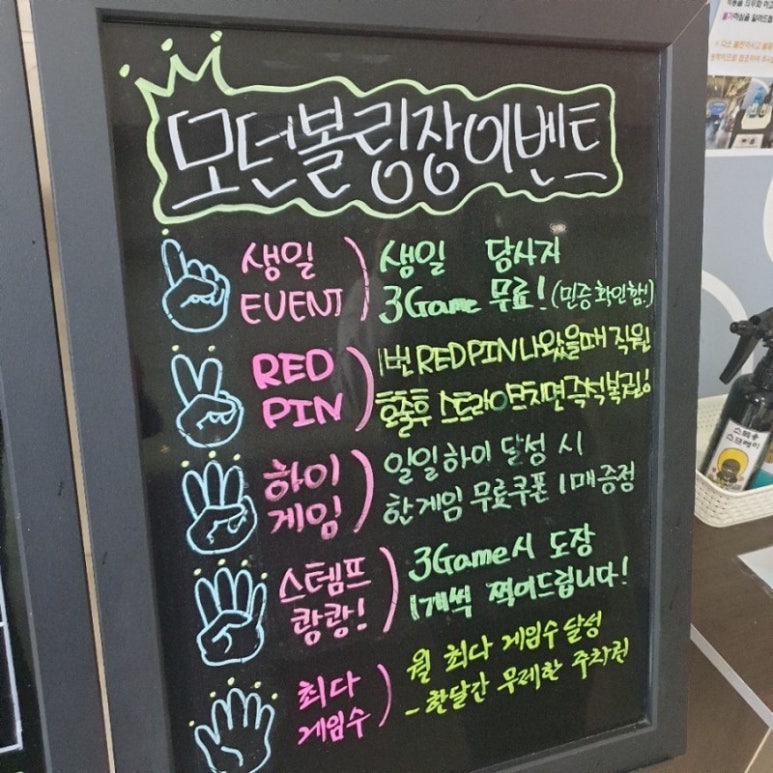 모던볼링장이벤트
생일 EVENT) 생일 당사자
3Game 무료! (민증확인함!)
RED PIN) 1번 REDPIN 나왔을때 직원
호출후 스트라이크치면 즉석복권
하이게임) 일일하이 달성 시
한게임 무료쿠폰 1매증정
스템프 쾅쾅!) 3Game시 도장
1개씩 찍어드립니다!
최다 게임수) 월 최다 게임수달성
- 한달간 무제한 주차권
스트롱
스프레이